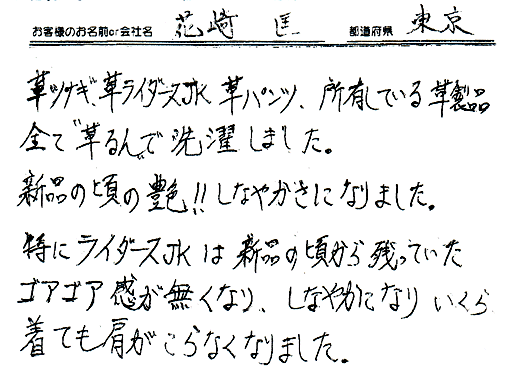 お客様のお名前or会社名 花崎 匡 都道府県 東京
革ツナギ、革ライダースJK 革パンツ、所有している革製品
全て"革るんで"洗濯しました。
新品の頃の艶!!しなやかさになりました。
特にライダースJKは新品の頃から残っていた
ゴアゴア感が無くなり、しなやかになりいくら
着ても肩がこらなくなりました。